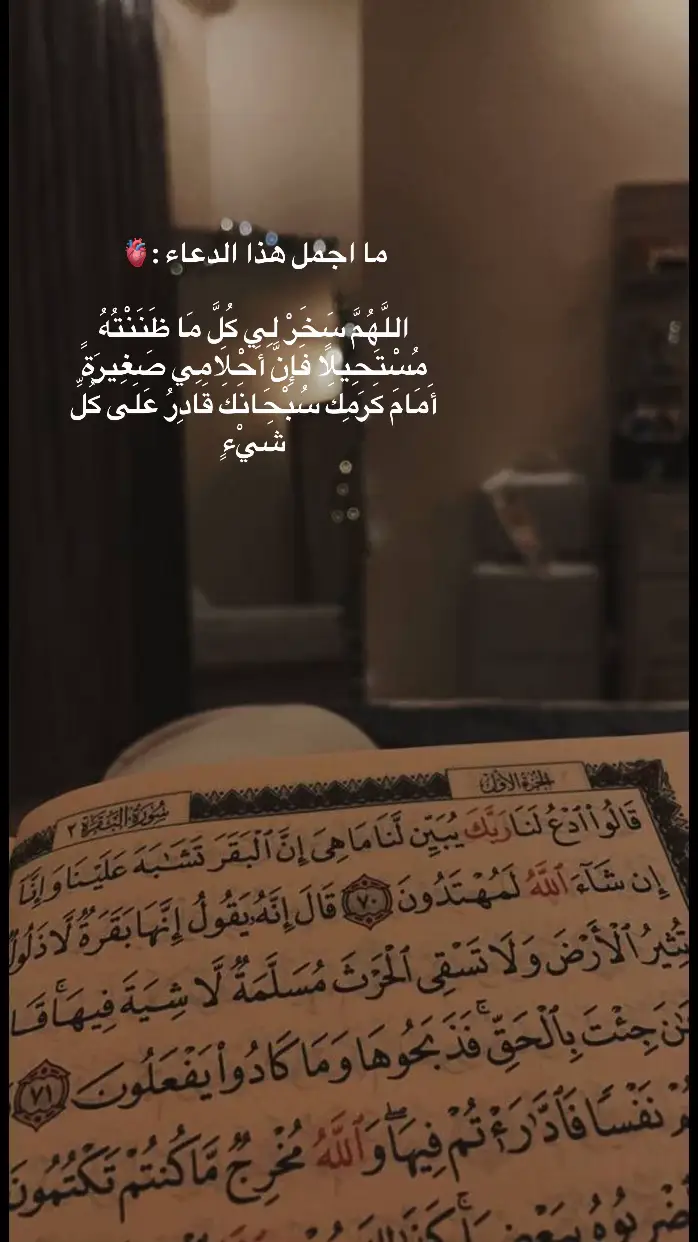 ما اجمل هذا الدعاء :🫀
اللَّهُمَّ سَخِرْ لِي كُلَّ مَا ظَنَنْتُهُ
مُسْتَحِيلًا فَإِنَّ أَحْلَامِي صَغِيرَةٍ
أَمَامَ كَرَمِكَ سُبْحَانَكَ قَادِرُ عَلَى كُلِّ
شَيْءٍ
الجزء الأول
سورة البقرة ٢
قَالُوا۟ ٱدْعُ لَنَا رَبَّكَ يُبَيِّن لَّنَا مَا هِىَ إِنَّ ٱلْبَقَرَ تَشَٰبَهَ عَلَيْنَا وَإِنَّآ
إِن شَآءَ ٱللَّهُ لَمُهْتَدُونَ ٧٠ قَالَ إِنَّهُۥ يَقُولُ إِنَّهَا بَقَرَةٌ لَّا ذَلُولٌ
تُثِيرُ ٱلْأَرْضَ وَلَا تَسْقِى ٱلْحَرْثَ مُسَلَّمَةٌ لَّا شِيَةَ فِيهَا ۚ
جِئْتَ بِٱلْحَقِّ ۚ فَذَبَحُوهَا وَمَا كَادُوا۟ يَفْعَلُونَ ٧١
نَفْسًا فَٱدَّٰرَْٰٔتُمْ فِيهَا ۖ وَٱللَّهُ مُخْرِجٌ مَّا كُنتُمْ تَكْتُمُونَ